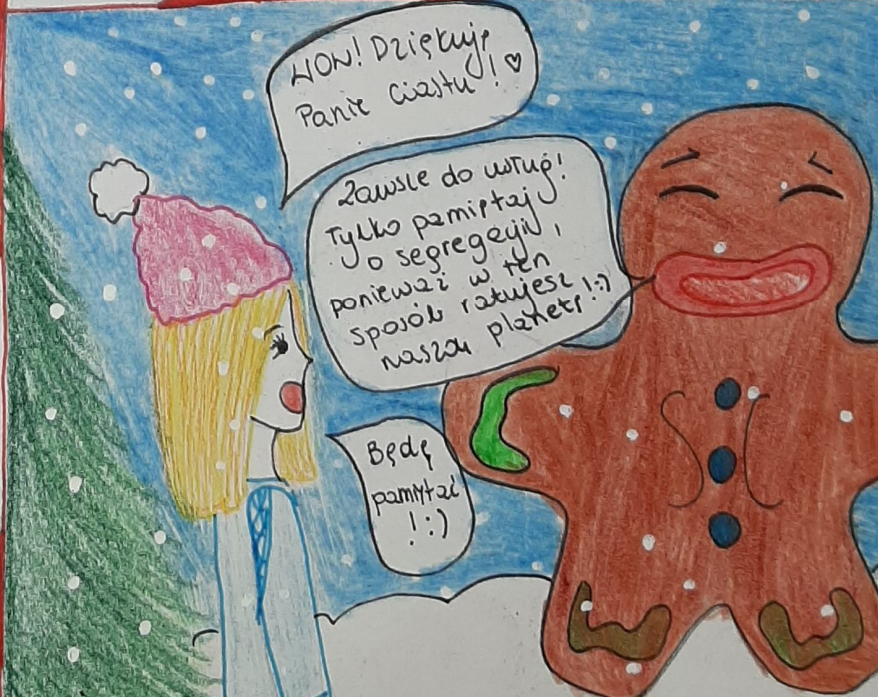 WOW! Dziękuję
Panie Ciastu! ♡
Zawsze do usług!
Tylko pamiętaj
o segregacji,
ponieważ w ten
sposób ratujesz
naszą planetę! :)
Będę
pamiętać
! :)